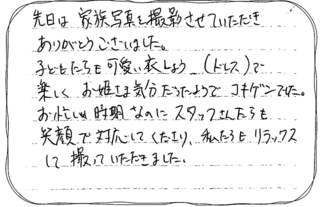 先日は 家族写真を撮影させていただき
ありがとうございました。
子どもたちも可愛い衣しょう (ドレス)で
楽しく お姫さま気分だったようで ゴキゲンでした。
お忙しい時期なのに スタッフさんたちも
笑顔で対応してくださり、私たちもリラックス
して撮っていただきました。